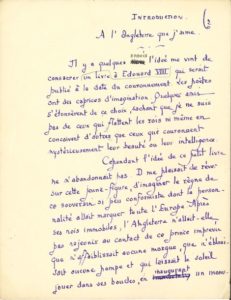 INTRODUCTION.
(2
A l'Angleterre que j'aime.
Il y a quelques années l'idée me vint de
consacrer un livre à Edouard VIII, qui serait
publié à la date du couronnement. Les poètes
ont des caprices d'imagination. Quelques amis
s'étonnèrent de ce choix, sachant que je ne suis
pas de ceux qui flattent les rois même s'ils ont
conscience d'autres que ceux que couronnent
mystérieusement leur beauté ou leur intelligence.
Cependant l'idée de ce petit livre
ne m'abandonnait pas. Il me plaisait de rêver
sur cette jeune figure, d'imaginer le règne de
ce souverain si peu conformiste dont la person-
nalité allait marquer toute l'Europe. Après
ses rois immobiles, l'Angleterre n'allait-elle
pas rajeunir au contact de ce prince imprévu
que n'affaiblissait aucune morgue, que n'éblouis-
sait aucune pompe et qui laissait le soleil
jouer dans ses boucles, en inaugurant un monu-